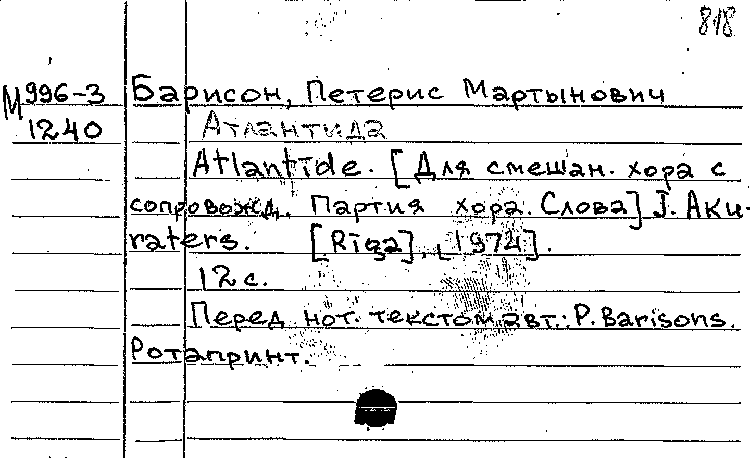 818
М 996-3 Барисон, Петерис Мартынович
1240 Атлантида
Atlantīde. [Для смешан. хора с
сопровожд. Партия хора. Слова] J. Aku-
raters. [Rīga], [1974].
12 с.
Перед нот. текстом авт.: P. Barisons.
Ротапринт.